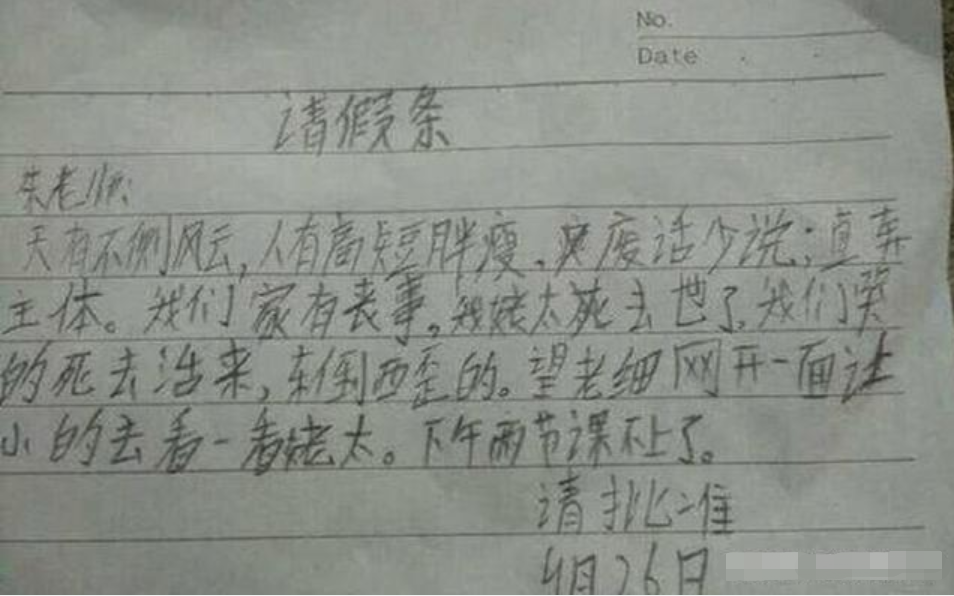 No.
Date
请假条
朱老师:
天有不侧风云,人有高短胖瘦。废话少说;直奔
主体。我们家有丧事。我姥太死去世了,我们哭
的死去活来,东倒西歪的。望老细网开一面让
小的去看一看姥太。下午两节课不上了。
请批准
4月26日